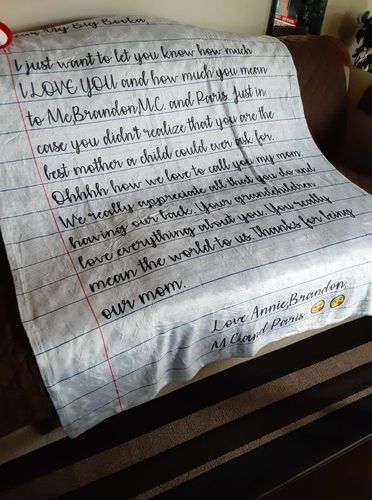 My Bug Booka,
I just want to let you know how much
I LOVE YOU and how much you mean
to Me,Brandon,M.C. and Paris. Just in
case you didn't realize that you are the
best mother a child could ever ask for.
Ohhhhh how we love to call you my mom.
We really appreciate all that you do and
having our back. Your grandchildren
love everything about you. You really
mean the world to us. Thanks for being
our mom.
Love Annie,Brandon,
M.C.and Paris 😘 😘